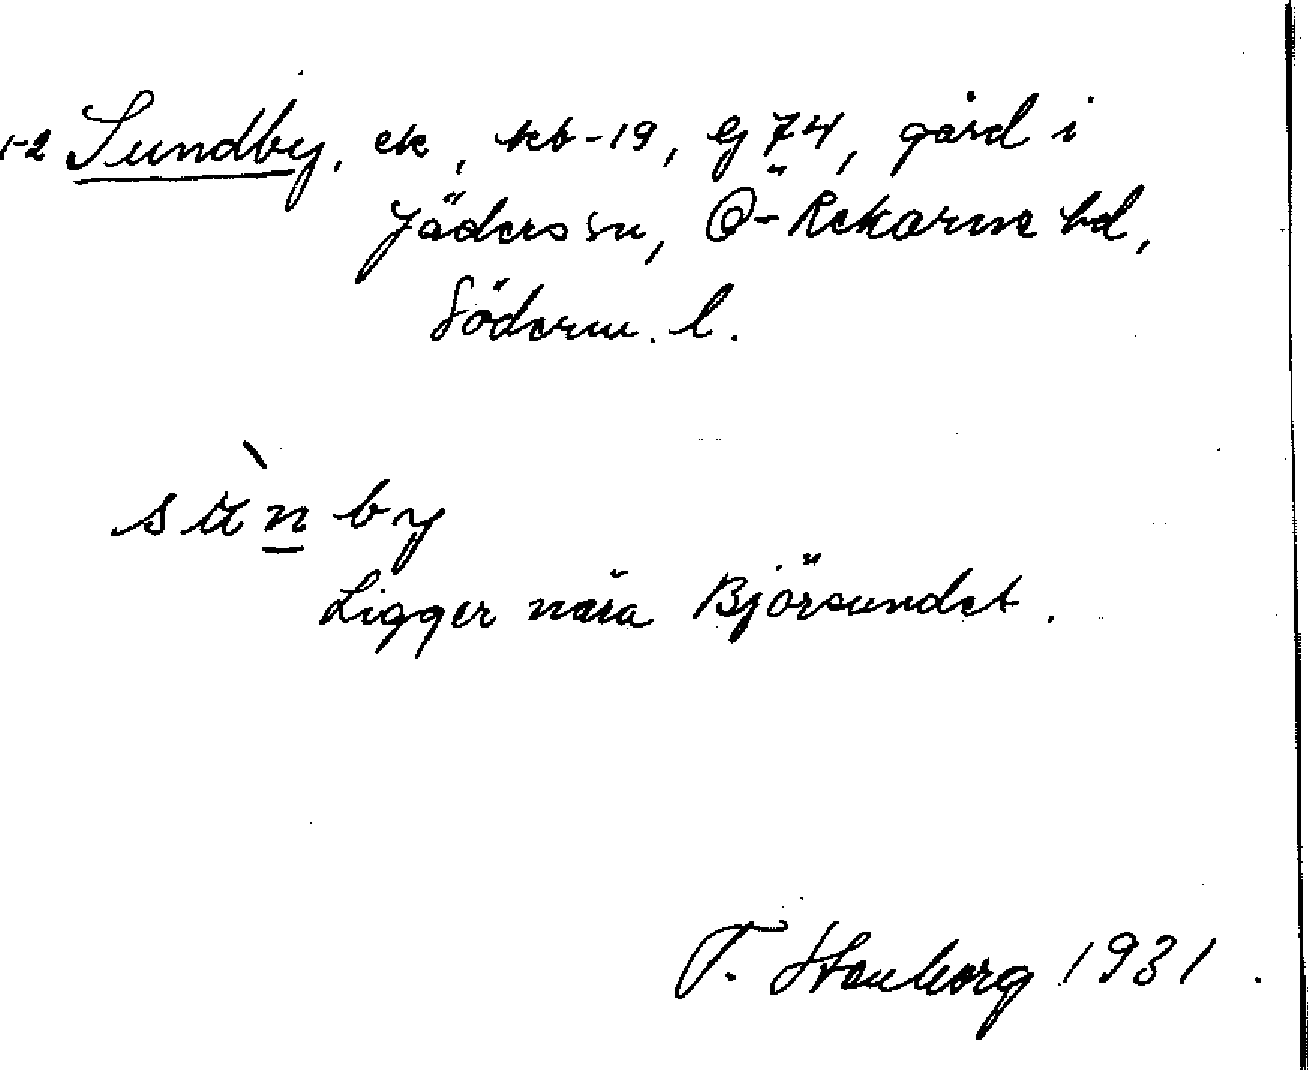 1-2 Sundby, ek, kb-19, Ej 74, gård i
Jäders sn, Ö-Rekarne hd,
Söderm. l.
sùn by
Ligger nära Björsundet.
T. Stenborg 1931.